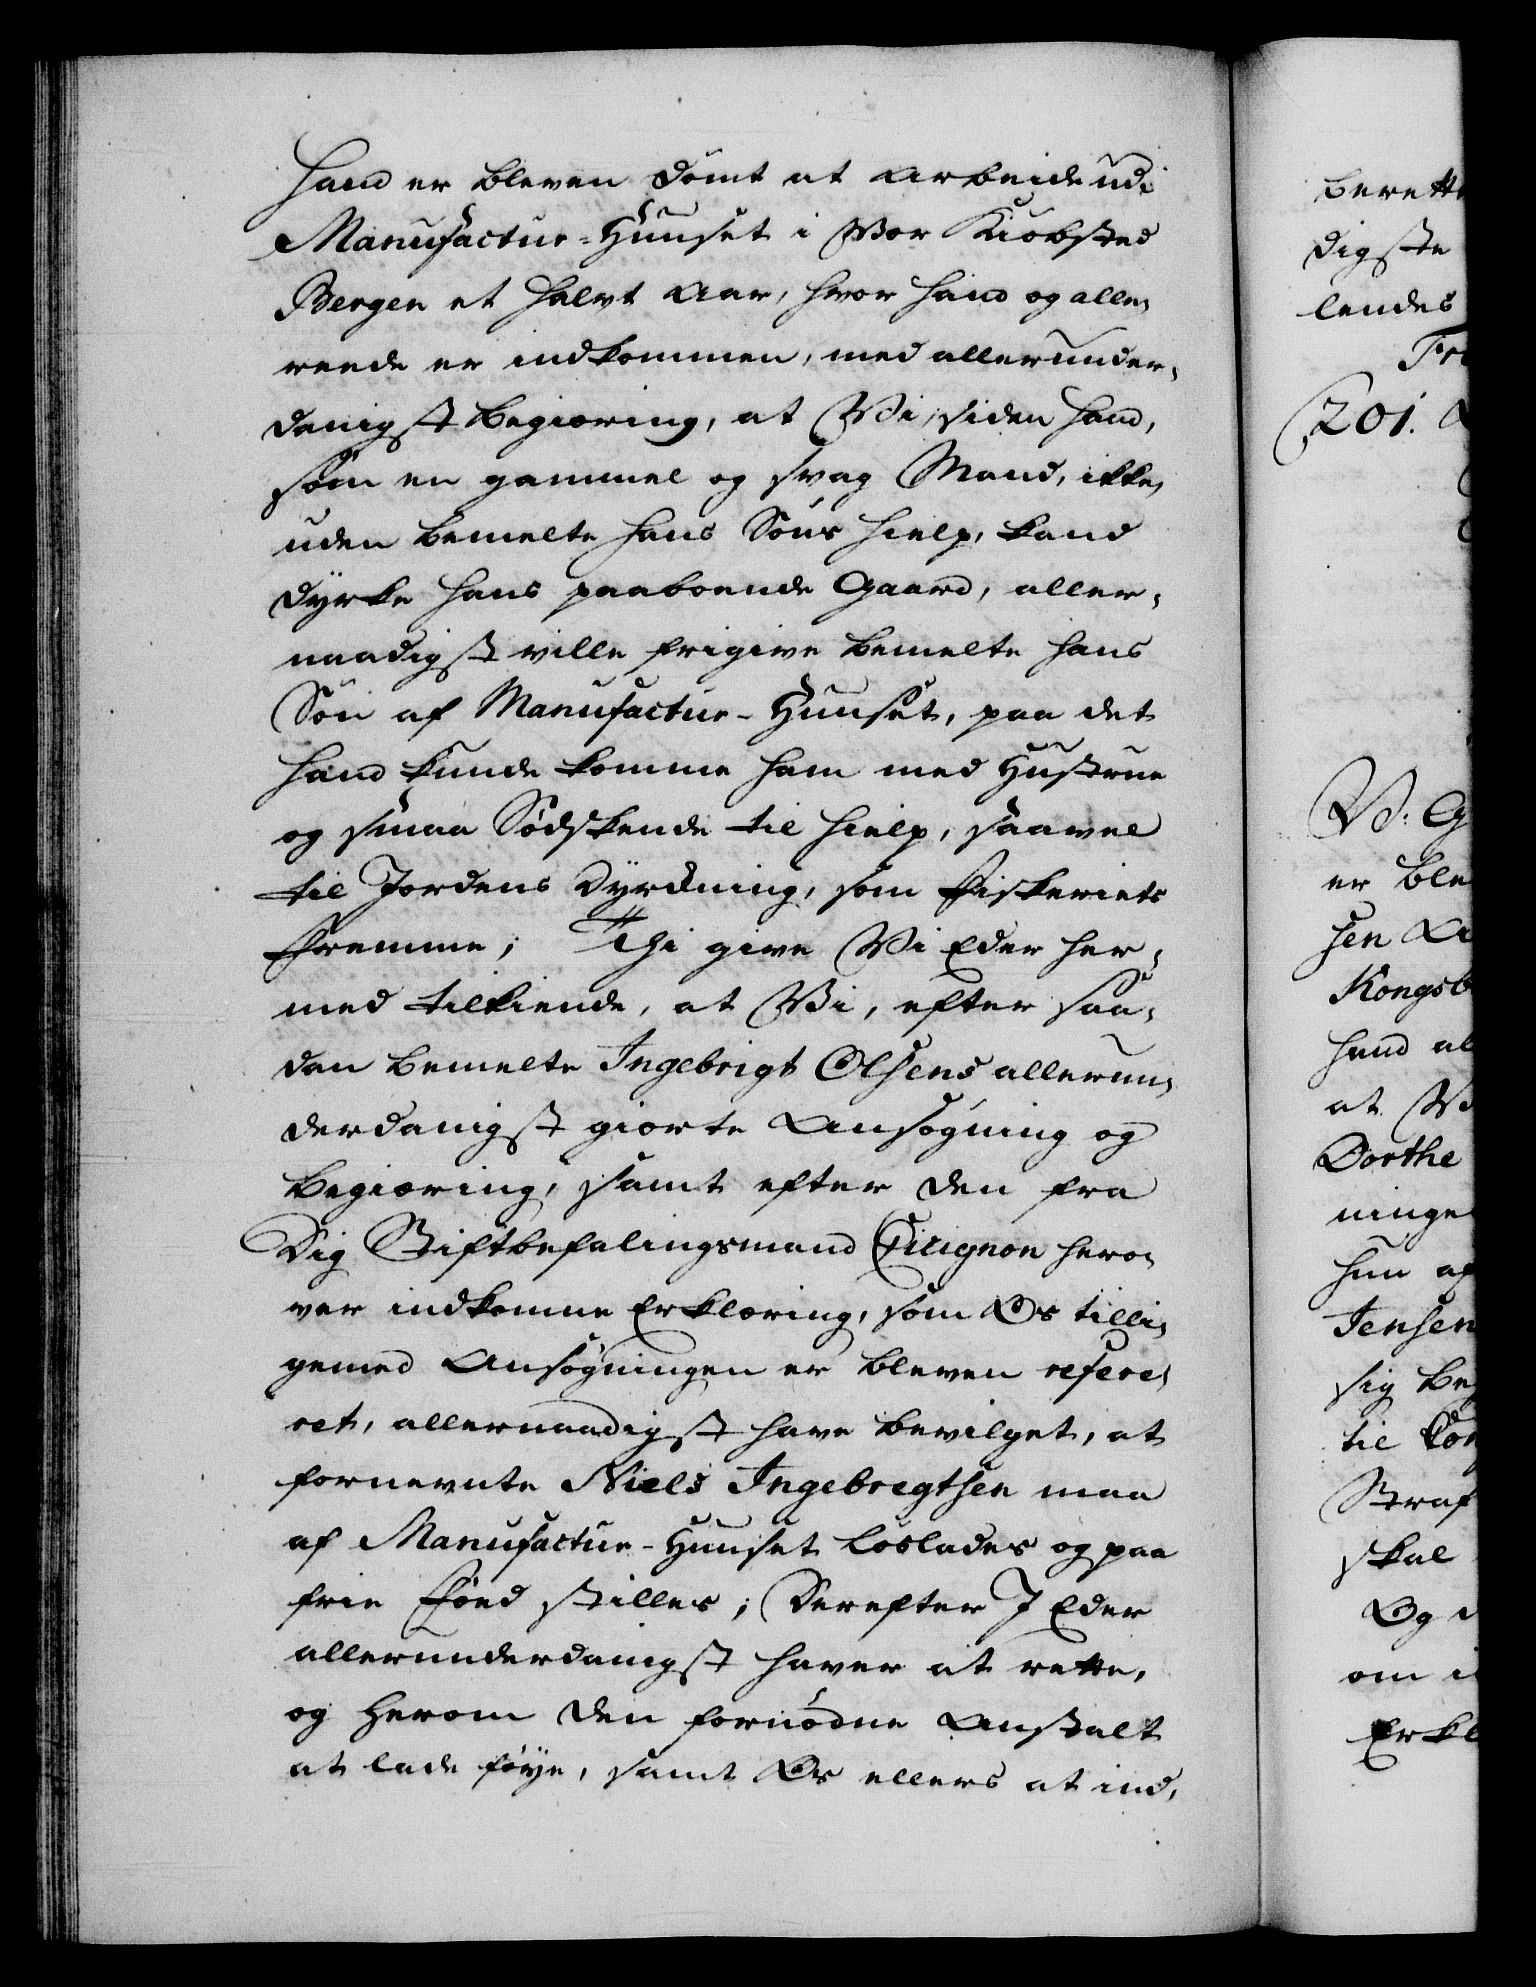 Hand er bleven dömt at arbeide udi
Manufactur-Huuset i Vor Kiöbsted
Bergen et halvt Aar, hvor hand og alle,
reede er indkommen, med allerunder,
danigst Begiæring, at Vi, siden hand,
som en gammel og svag Mand, ikke,
uden bemelte hans Söns hielp, kand
dyrke hans paaboende Gaard, aller,
naadigst ville frigive bemelte hans
Sön af Manufactur-Huuset, paa det
hand kunde komme ham med Hustrue
og smaa Södskende til hielp, saavel
til Jordens Dyrkning, som Fiskeriets
Fremme; Thi give Vi Eder her,
med tilkiende, at Vi, efter saa,
dan bemelte Ingebrigt Olsens allerun,
derdanigst giorte Ansögning og
Begiæring, samt efter den fra
Dig Stiftbefalingsmand Cicignon hero,
ver indkomne Erklæring, som Os tilli,
gemed Ansögningen er bleven refere,
ret, allernaadigst have bevilget, at
fornevnte Niels Ingebregtsen maa
af Manufactur-Huuset löslades og paa
frie Föed stilles; Derefter I Eder
allerunderdanigst haver at rette,
og herom den fornödne Anstalt
at lade föye, samt Os ellers at ind,
berette
digste
lendes
201.
er ble
sen
Kongsb
hand al
at Vi
Dorthe
ninge
hun af
Jensen
sig be
til
Straf
skal
Og
om
Erkl